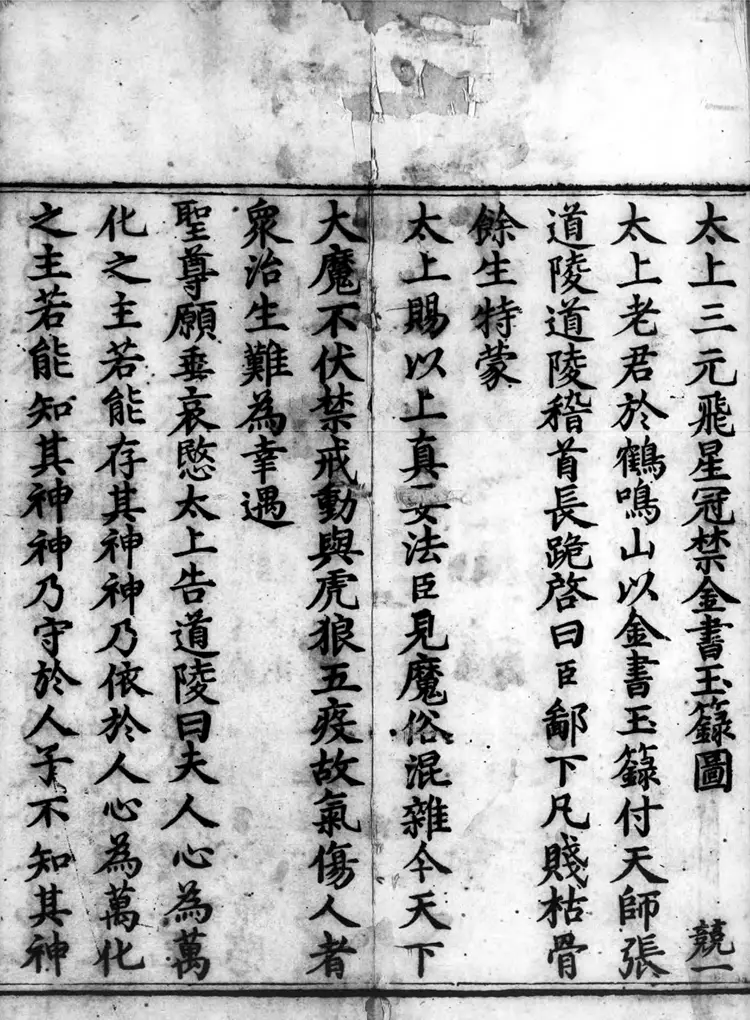 太上三元飛星冠禁金書玉籙圖 競一
太上老君於鶴鳴山以金書玉籙付天師張
道陵道陵稽首長跪啓曰臣鄙下凡賤枯骨
餘生特蒙
太上賜以上真妙法臣見魔俗混雜今天下
大魔不伏禁戒動與虎狼五疫故氣傷人者
衆治生難為幸遇
聖尊願垂哀愍太上告道陵曰夫人心為萬
化之主若能存其神神乃依於人心為萬化
之主若能知其神神乃守於人子不知其神